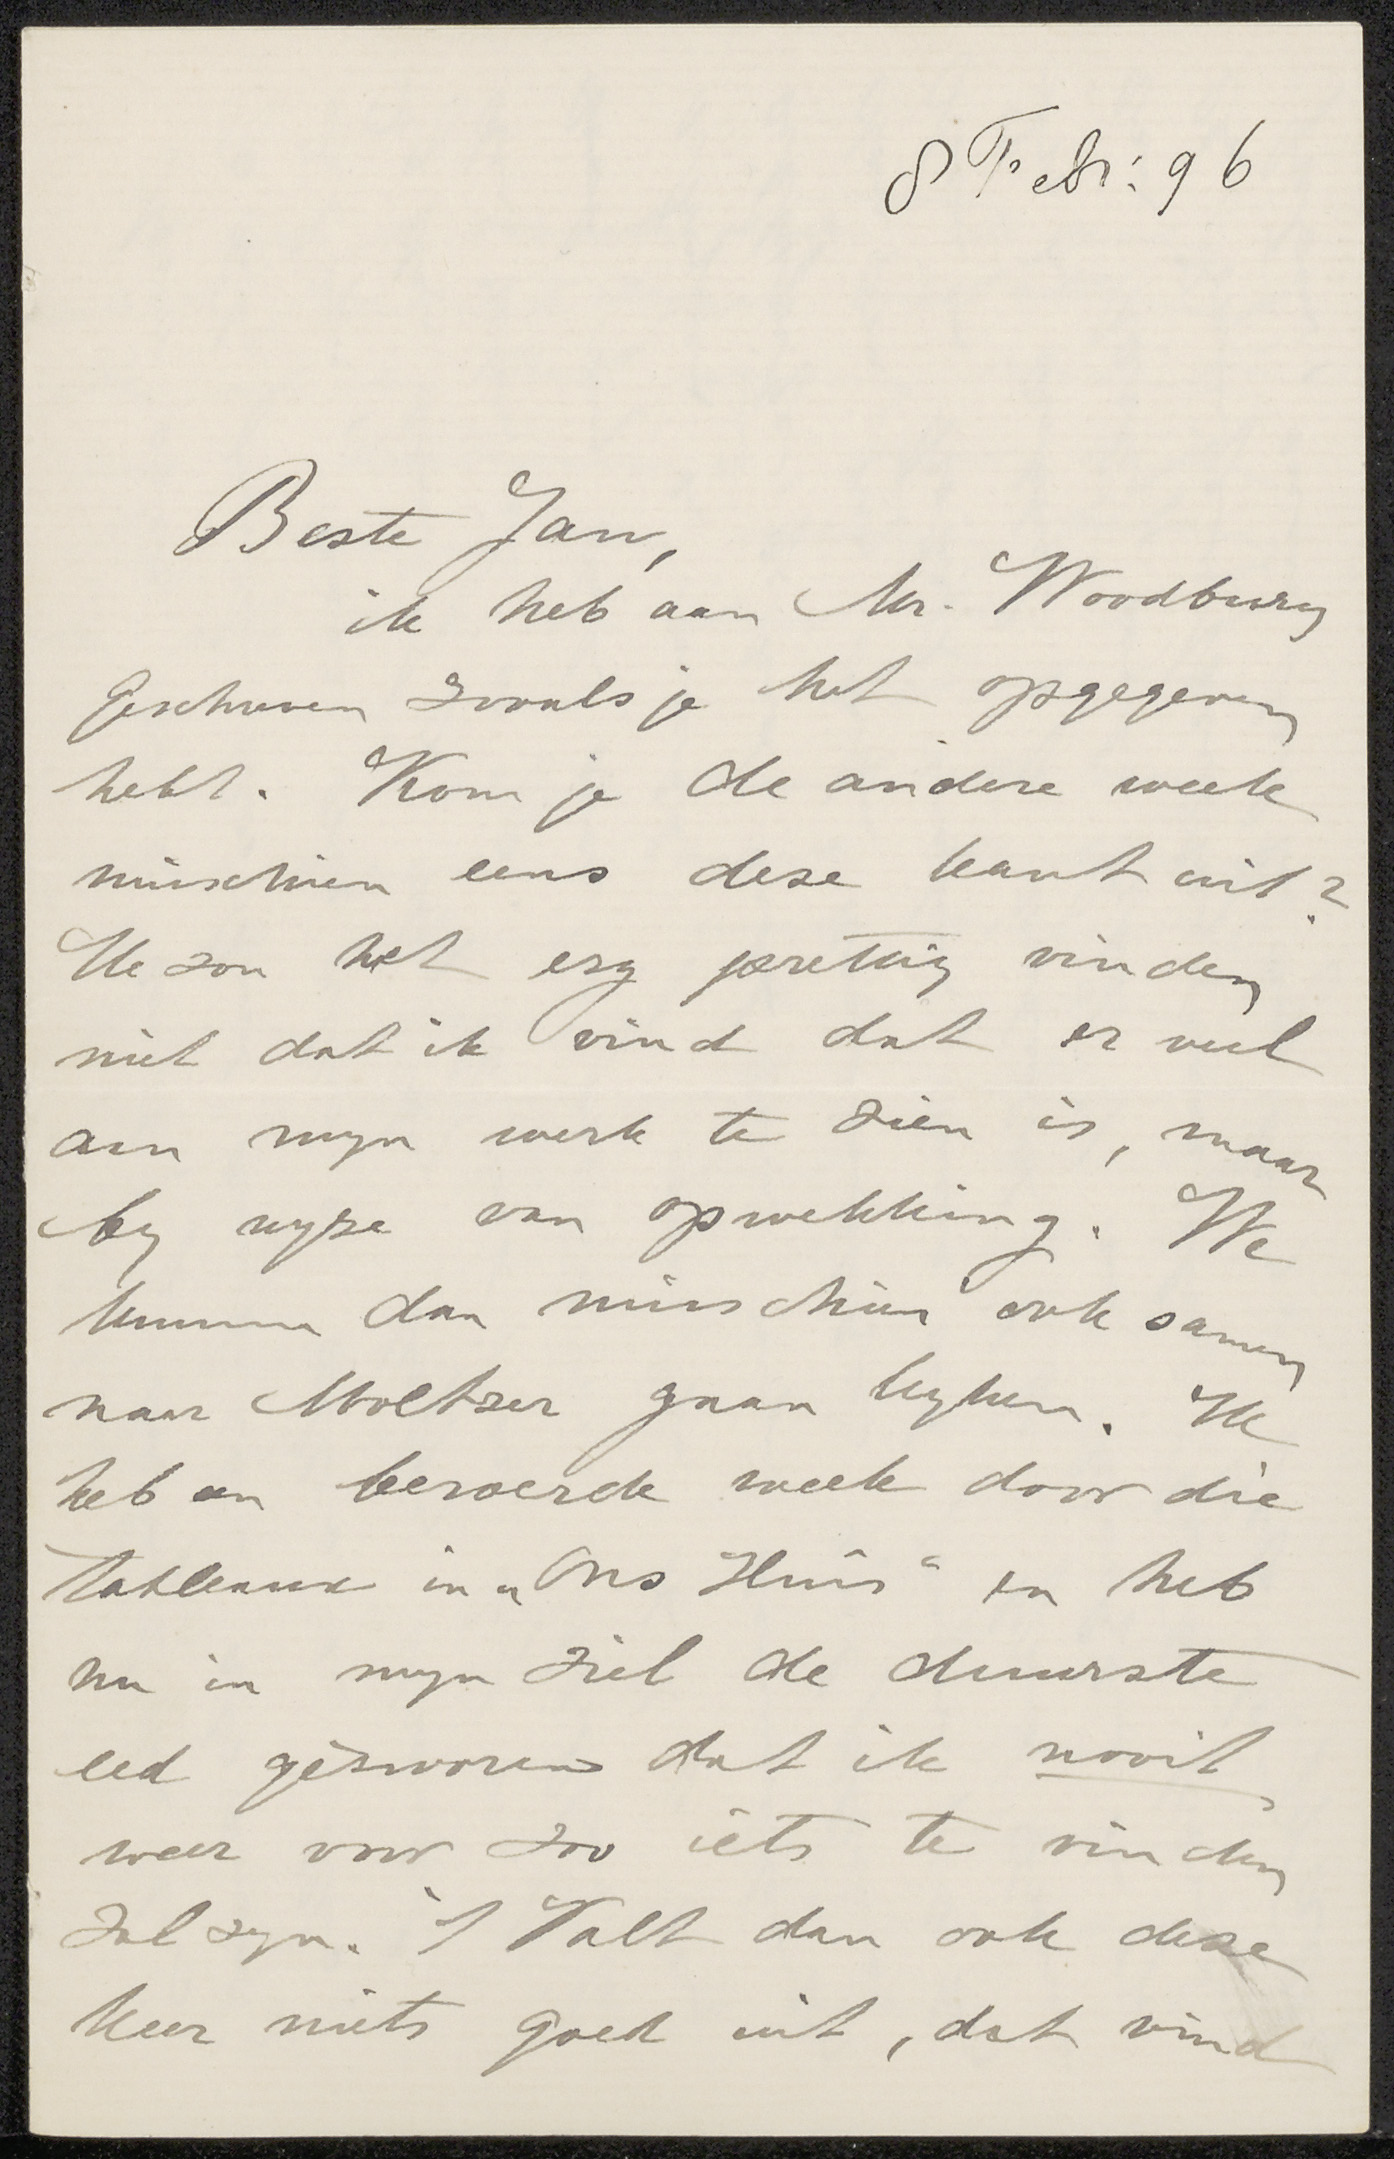 8 Febr: 96
Beste Jan,
ik heb aan Mr. Woodbury
geschreven zooals je het opgegeven
hebt. Kom je de andere week
misschien eens deze kant uit?
Ik zou het erg prettig vinden
niet dat ik vind dat er veel
aan myn werk te zien is, maar
by wyze van opwekking. We
kunnen dan misschien ook samen
naar Moltzer gaan kyken. Ik
heb een beroerde week door die
tableaux in „Ons Huis" en heb
nu in myn ziel de duurste
eed gezworen dat ik nooit
weer voor zoo iets te vinden
zal zyn. 't Valt dan ook deze
keer niets goed uit, dat vind